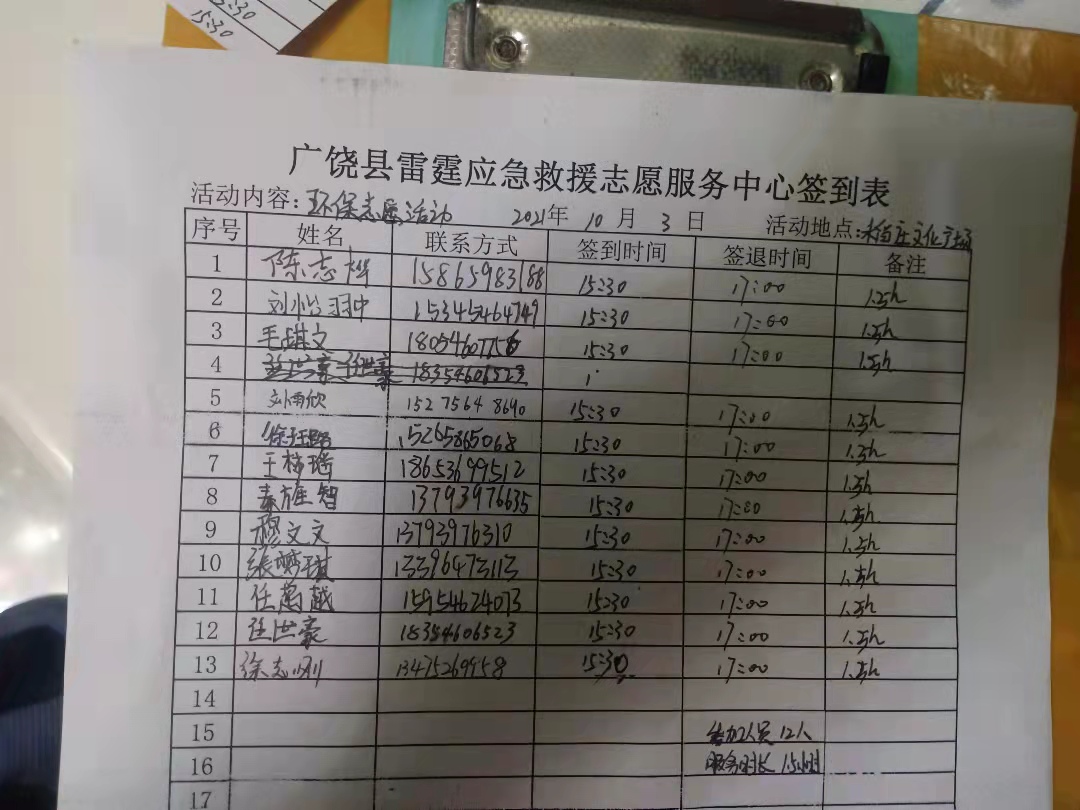 15:30
15:30
广饶县雷霆应急救援志愿服务中心签到表
活动内容：环保志愿活动 2021年 10 月 3 日 活动地点：文化广场
序号 姓名 联系方式 签到时间 签退时间 备注
1 陈志桦 15865983188 15:30 17:00 1.5h
2 刘 15345464749 15:30 17:00 1.5h
3 毛琪文 15:30 17:00 1.5h
4 任世豪 18354606523
5 刘雨欣 15275648690 15:30 17:00 1.5h
6 15265865068 15:30 17:00 1.5h
7 王柿瑶 18653699512 15:30 17:00 1.5h
8 智 13793976635 15:30 17:00 1.5h
9 穆文文 13793976310 15:30 17:00 1.5h
10 张梦琪 13396473113 15:30 17:00 1.5h
11 任 越 15954624073 15:30 17:00 1.5h
12 任世豪 18354606523 15:30 17:00 1.5h
13 徐志刚 13475269958 15:30 17:00 1.5h
14
15 参加人员 12人
16 服务时长 1.5小时
17